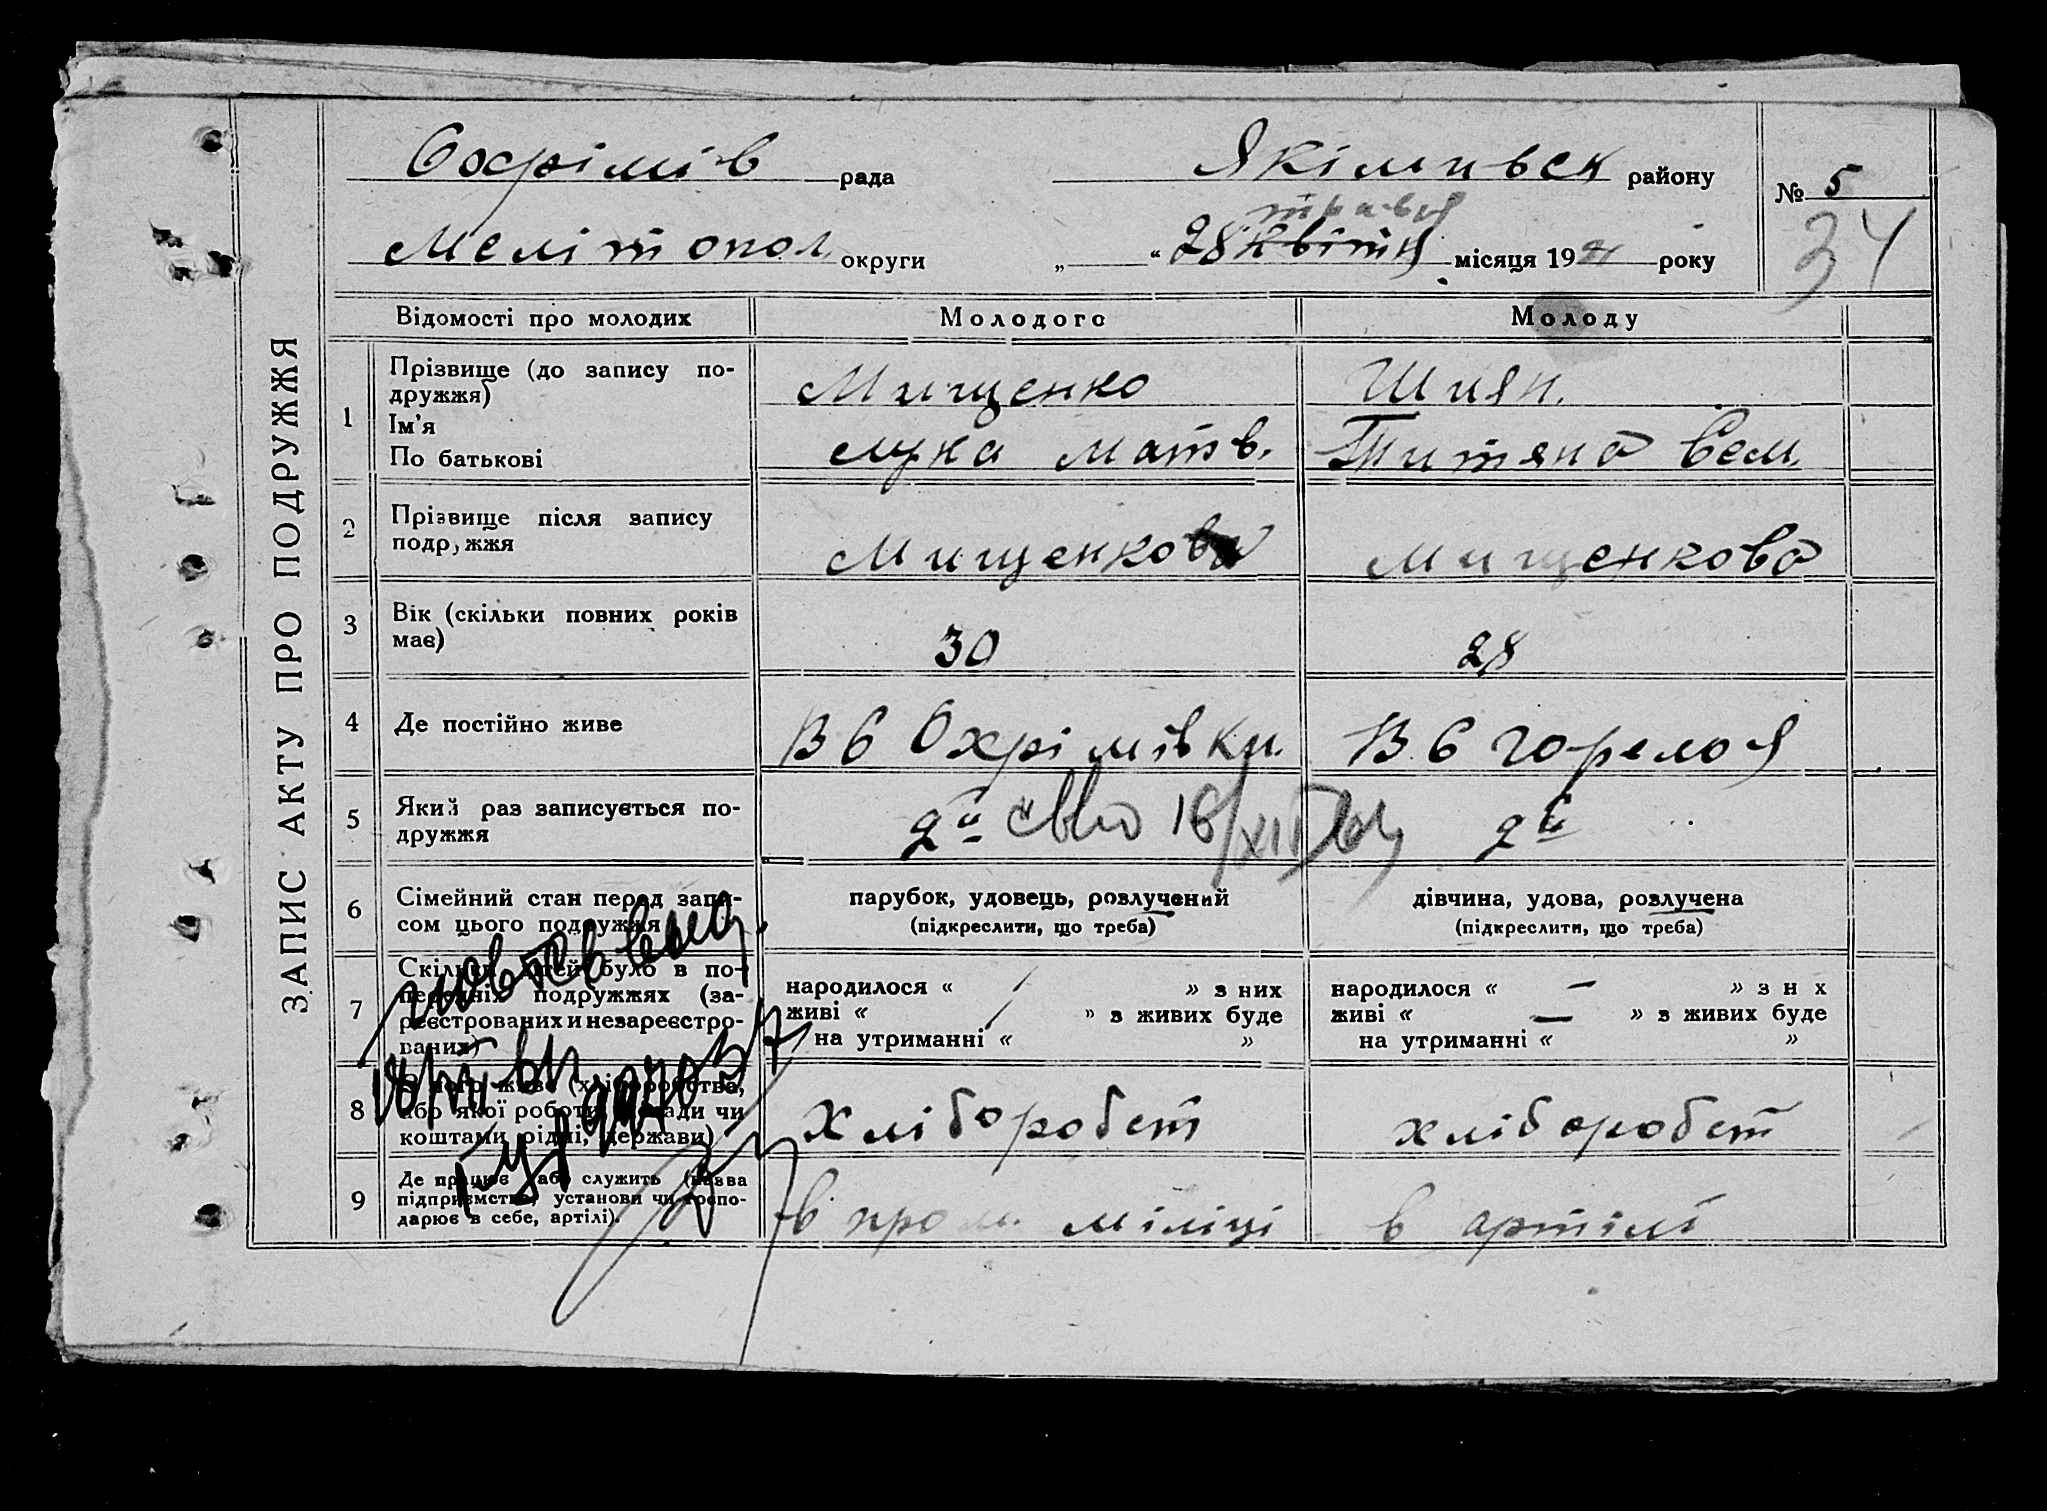 ЗАПИС АКТУ ПРО ПОДРУЖЖЯ
Охрімів рада Якімівск району № 5
травня
Мелітопол округи „ “ 28 квітня місяця 19 року 34
Відомості про молодих Молодого Молоду
1 Прізвище (до запису по-
дружжя) Мищенко Шиян.
Ім'я
По батькові Лука Матв. Титяна Сем.
2 Прізвище після запису
подружжя Мищенкова Мищенкова
3 Вік (скільки повних років
має) 30 28
4 Де постійно живе В С Охрімівки. В С Горелоя
5 Який раз записується по-
дружжя 2й 16/XII 2й
6 Сімейний стан перед запи-
сом цього подружжя парубок, удовець, розлучений дівчина, удова, розлучена
(підкреслити, що треба) (підкреслити, що треба)
7 Скільки дітей було в по-
передніх подружжях (за-
реєстрованих и незареєстро-
ваних) народилося « / » з них народилося « — » з н х
живі « / » з живих буде живі « — » з живих буде
на утриманні « » на утриманні « »
8 З чого живе (хліборобства,
або якої роботи, посади чи
коштами рідні, держави) хліборобст хліборобст
9 Де працює або служить (назва
підприємства, установи чи госпо-
дарює в себе, артілі). в пром. міліці в артілі